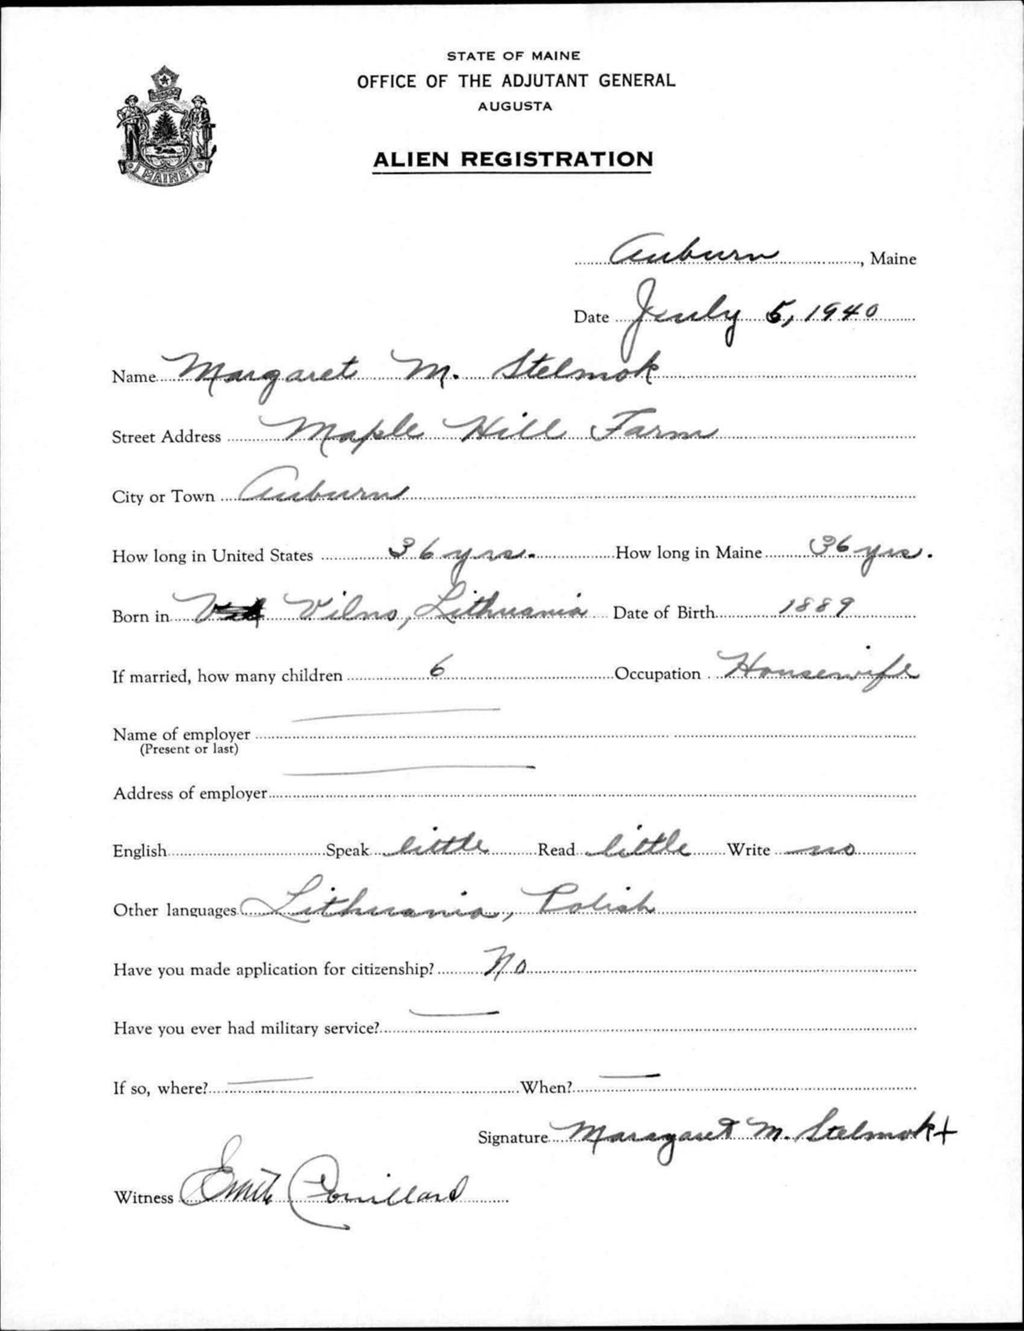 STATE OF MAINE
OFFICE OF THE ADJUTANT GENERAL
AUGUSTA
ALIEN REGISTRATION
MAINE
Auburn, Maine
Date July 5, 1940
Name Margaret M. Stelmok
Street Address Maple Hill Farm
City or Town Auburn
How long in United States 36 yrs. How long in Maine 36 yrs.
Born in Vilno, Lithuania Date of Birth 1889
If married, how many children 6 Occupation Housewife
Name of employer
(Present or last)
Address of employer
English Speak little Read little Write no
Other languages Lithuania, Polish
Have you made application for citizenship? No
Have you ever had military service?
If so, where? When?
Signature Maragaret M. Stelmok +
Witness Couillard